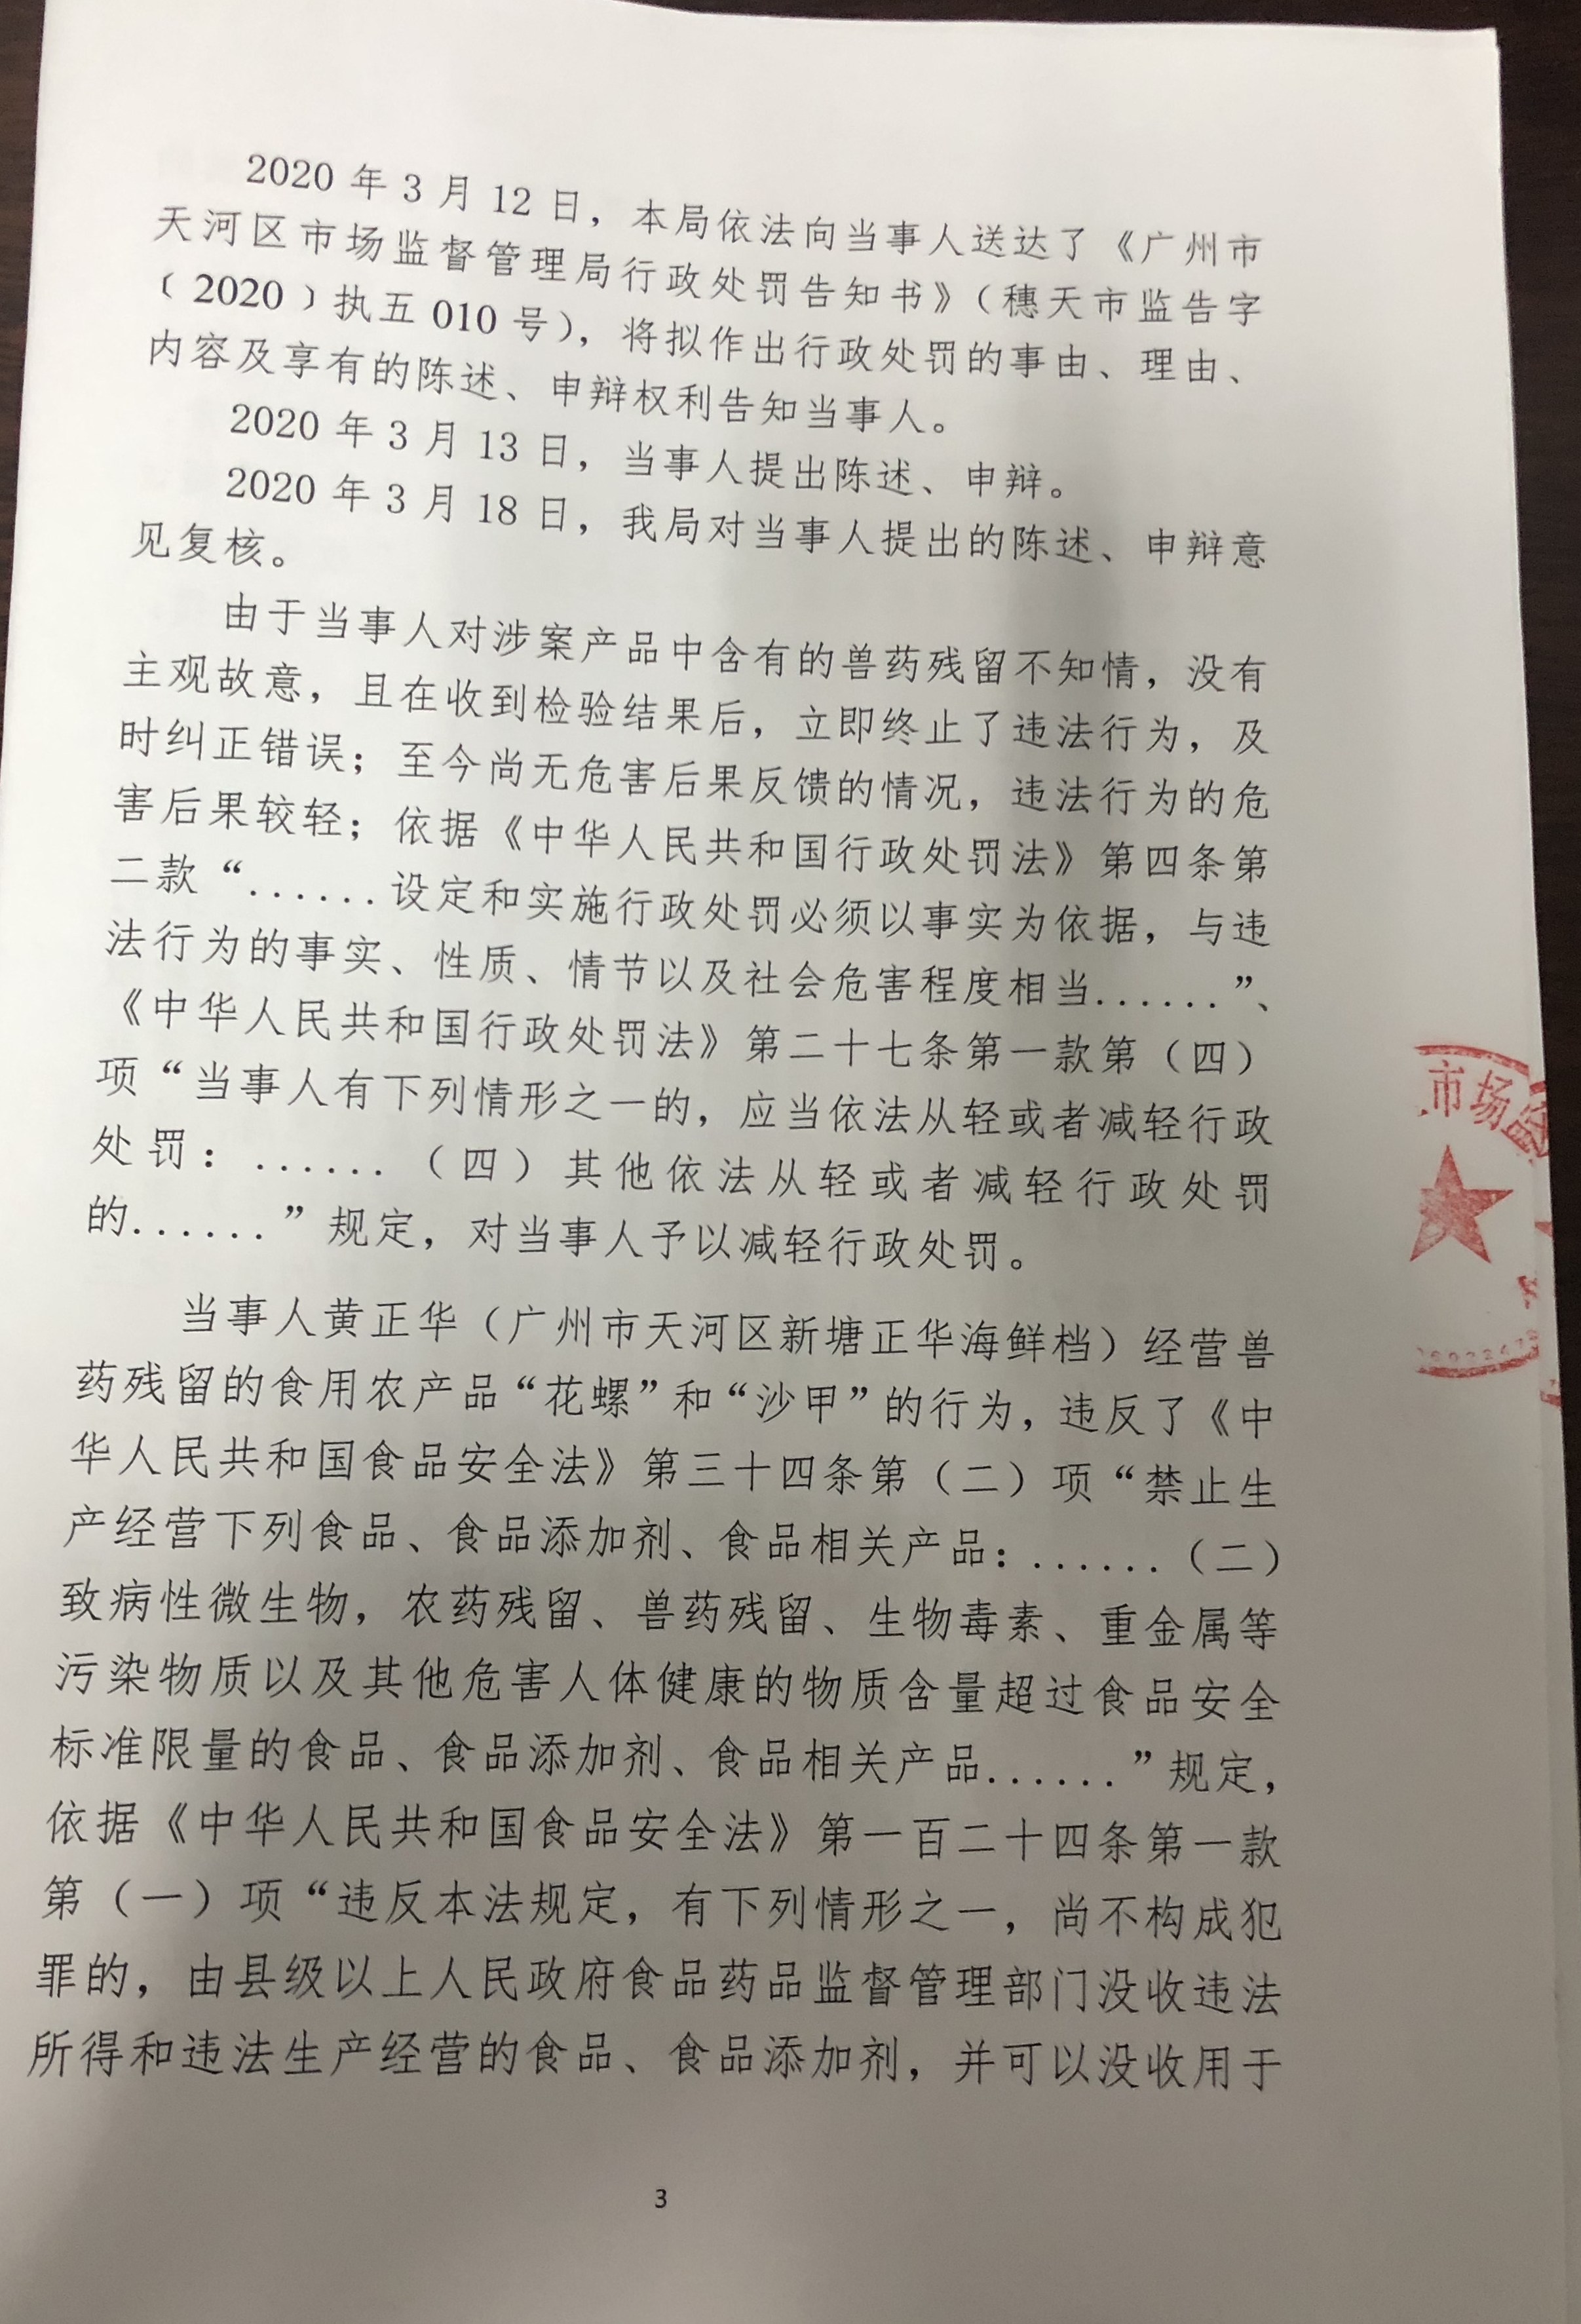 2020 年 3 月 12 日，本局依法向当事人送达了《广州市
天河区市场监督管理局行政处罚告知书》（穗天市监告字
〔2020〕执五 010 号），将拟作出行政处罚的事由、理由、
内容及享有的陈述、申辩权利告知当事人。
2020 年 3 月 13 日，当事人提出陈述、申辩。
2020 年 3 月 18 日，我局对当事人提出的陈述、申辩意
见复核。
由于当事人对涉案产品中含有的兽药残留不知情，没有
主观故意，且在收到检验结果后，立即终止了违法行为，及
时纠正错误；至今尚无危害后果反馈的情况，违法行为的危
害后果较轻；依据《中华人民共和国行政处罚法》第四条第
二款“......设定和实施行政处罚必须以事实为依据，与违
法行为的事实、性质、情节以及社会危害程度相当......”、
《中华人民共和国行政处罚法》第二十七条第一款第（四）
项“当事人有下列情形之一的，应当依法从轻或者减轻行政
处罚：......（四）其他依法从轻或者减轻行政处罚
的......”规定，对当事人予以减轻行政处罚。
当事人黄正华（广州市天河区新塘正华海鲜档）经营兽
药残留的食用农产品“花螺”和“沙甲”的行为，违反了《中
华人民共和国食品安全法》第三十四条第（二）项“禁止生
产经营下列食品、食品添加剂、食品相关产品：......（二）
致病性微生物，农药残留、兽药残留、生物毒素、重金属等
污染物质以及其他危害人体健康的物质含量超过食品安全
标准限量的食品、食品添加剂、食品相关产品......”规定，
依据《中华人民共和国食品安全法》第一百二十四条第一款
第（一）项“违反本法规定，有下列情形之一，尚不构成犯
罪的，由县级以上人民政府食品药品监督管理部门没收违法
所得和违法生产经营的食品、食品添加剂，并可以没收用于
3
市场监